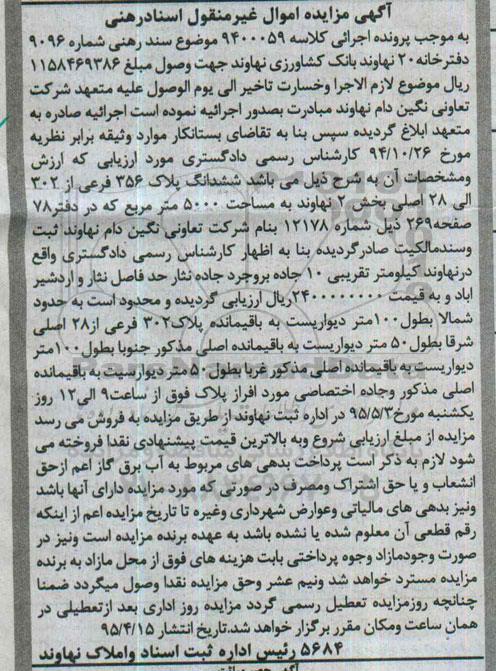 آگهی مزایده اموال غیرمنقول اسنادرهنی
به موجب پرونده اجرائی کلاسه ۹۴۰۰۰۵۹ موضوع سند رهنی شماره ۹۰۹۶
دفترخانه ۲۰ نهاوند بانک کشاورزی نهاوند جهت وصول مبلغ ۱۱۵۸۴۶۹۳۸۶
ریال موضوع لازم الاجرا وخسارت تاخیر الی یوم الوصول علیه متعهد شرکت
تعاونی نگین دام نهاوند مبادرت بصدور اجرائیه نموده است اجرائیه صادره به
متعهد ابلاغ گردیده سپس بنا به تقاضای بستانکار موارد وثیقه برابر نظریه
مورخ ۹۴/۱۰/۲۶ کارشناس رسمی دادگستری مورد ارزیابی که ارزش
ومشخصات آن به شرح ذیل می باشد ششدانگ پلاک ۳۵۶ فرعی از ۳۰۲
الی ۲۸ اصلی بخش ۲ نهاوند به مساحت ۵۰۰۰ متر مربع که در دفتر۷۸
صفحه۲۶۹ ذیل شماره ۱۲۱۷۸ بنام شرکت تعاونی نگین دام نهاوند ثبت
وسندمالکیت صادرگردیده بنا به اظهار کارشناس رسمی دادگستری واقع
درنهاوند کیلومتر تقریبی ۱۰ جاده بروجرد جاده نثار حد فاصل نثار و اردشیر
اباد و به قیمت ۲۴۰۰۰۰۰۰۰۰ریال ارزیابی گردیده و محدود است به حدود
شمالا بطول۱۰۰متر دیواریست به باقیمانده پلاک۳۰۲ فرعی از۲۸ اصلی
شرقا بطول۵۰ متر دیواریست به باقیمانده اصلی مذکور جنوبا بطول۱۰۰متر
دیواریست به باقیمانده اصلی مذکور غربا بطول۵۰متر دیواریست به باقیمانده
اصلی مذکور وجاده اختصاصی مورد افراز پلاک فوق از ساعت۹ الی۱۲ روز
یکشنبه مورخ۹۵/۵/۳ در اداره ثبت نهاوند از طریق مزایده به فروش می رسد
مزایده از مبلغ ارزیابی شروع وبه بالاترین قیمت پیشنهادی نقدا فروخته می
شود لازم به ذکر است پرداخت بدهی های مربوط به آب برق گاز اعم ازحق
انشعاب و یا حق اشتراک ومصرف در صورتی که مورد مزایده دارای آنها باشد
ونیز بدهی های مالیاتی وعوارض شهرداری وغیره تا تاریخ مزایده اعم از اینکه
رقم قطعی آن معلوم شده یا نشده باشد به عهده برنده مزایده است ونیز در
صورت وجودمازاد وجوه پرداختی بابت هزینه های فوق از محل مازاد به برنده
مزایده مسترد خواهد شد ونیم عشر وحق مزایده نقدا وصول میگردد ضمنا
چنانچه روزمزایده تعطیل رسمی گردد مزایده روز اداری بعد ازتعطیلی در
همان ساعت ومکان مقرر برگزار خواهد شد.تاریخ انتشار ۹۵/۴/۱۵
۵۶۸۴ رئیس اداره ثبت اسناد واملاک نهاوند